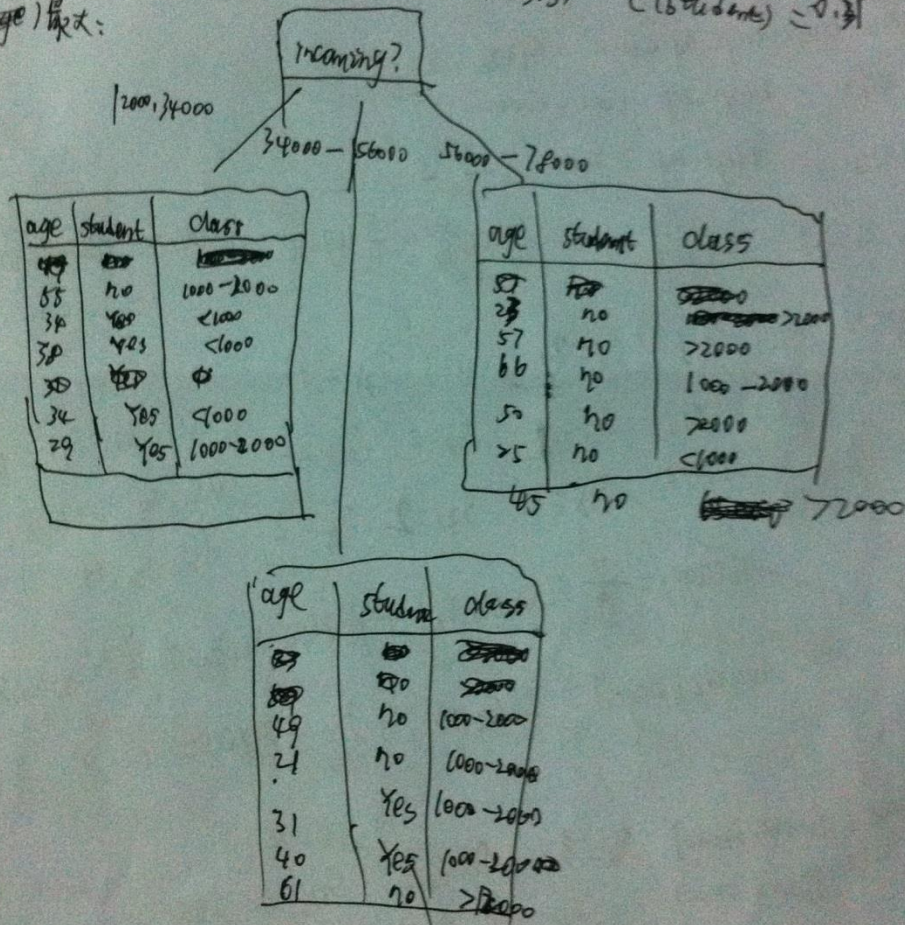 最大:
=0.31
incoming?
12000,34000
34000-56000 56000-78000
age student class
55 no 1000-2000
34 Yes <1000
38 Yes <1000
34 Yes <1000
29 Yes 1000-2000
age student class
23 no >2000
57 no >2000
66 no 1000-2000
50 no >2000
25 no <1000
45 no >2000
age student class
49 no 1000-2000
21 no 1000-2000
31 Yes 1000-2000
40 Yes 1000-2000
61 no >2000